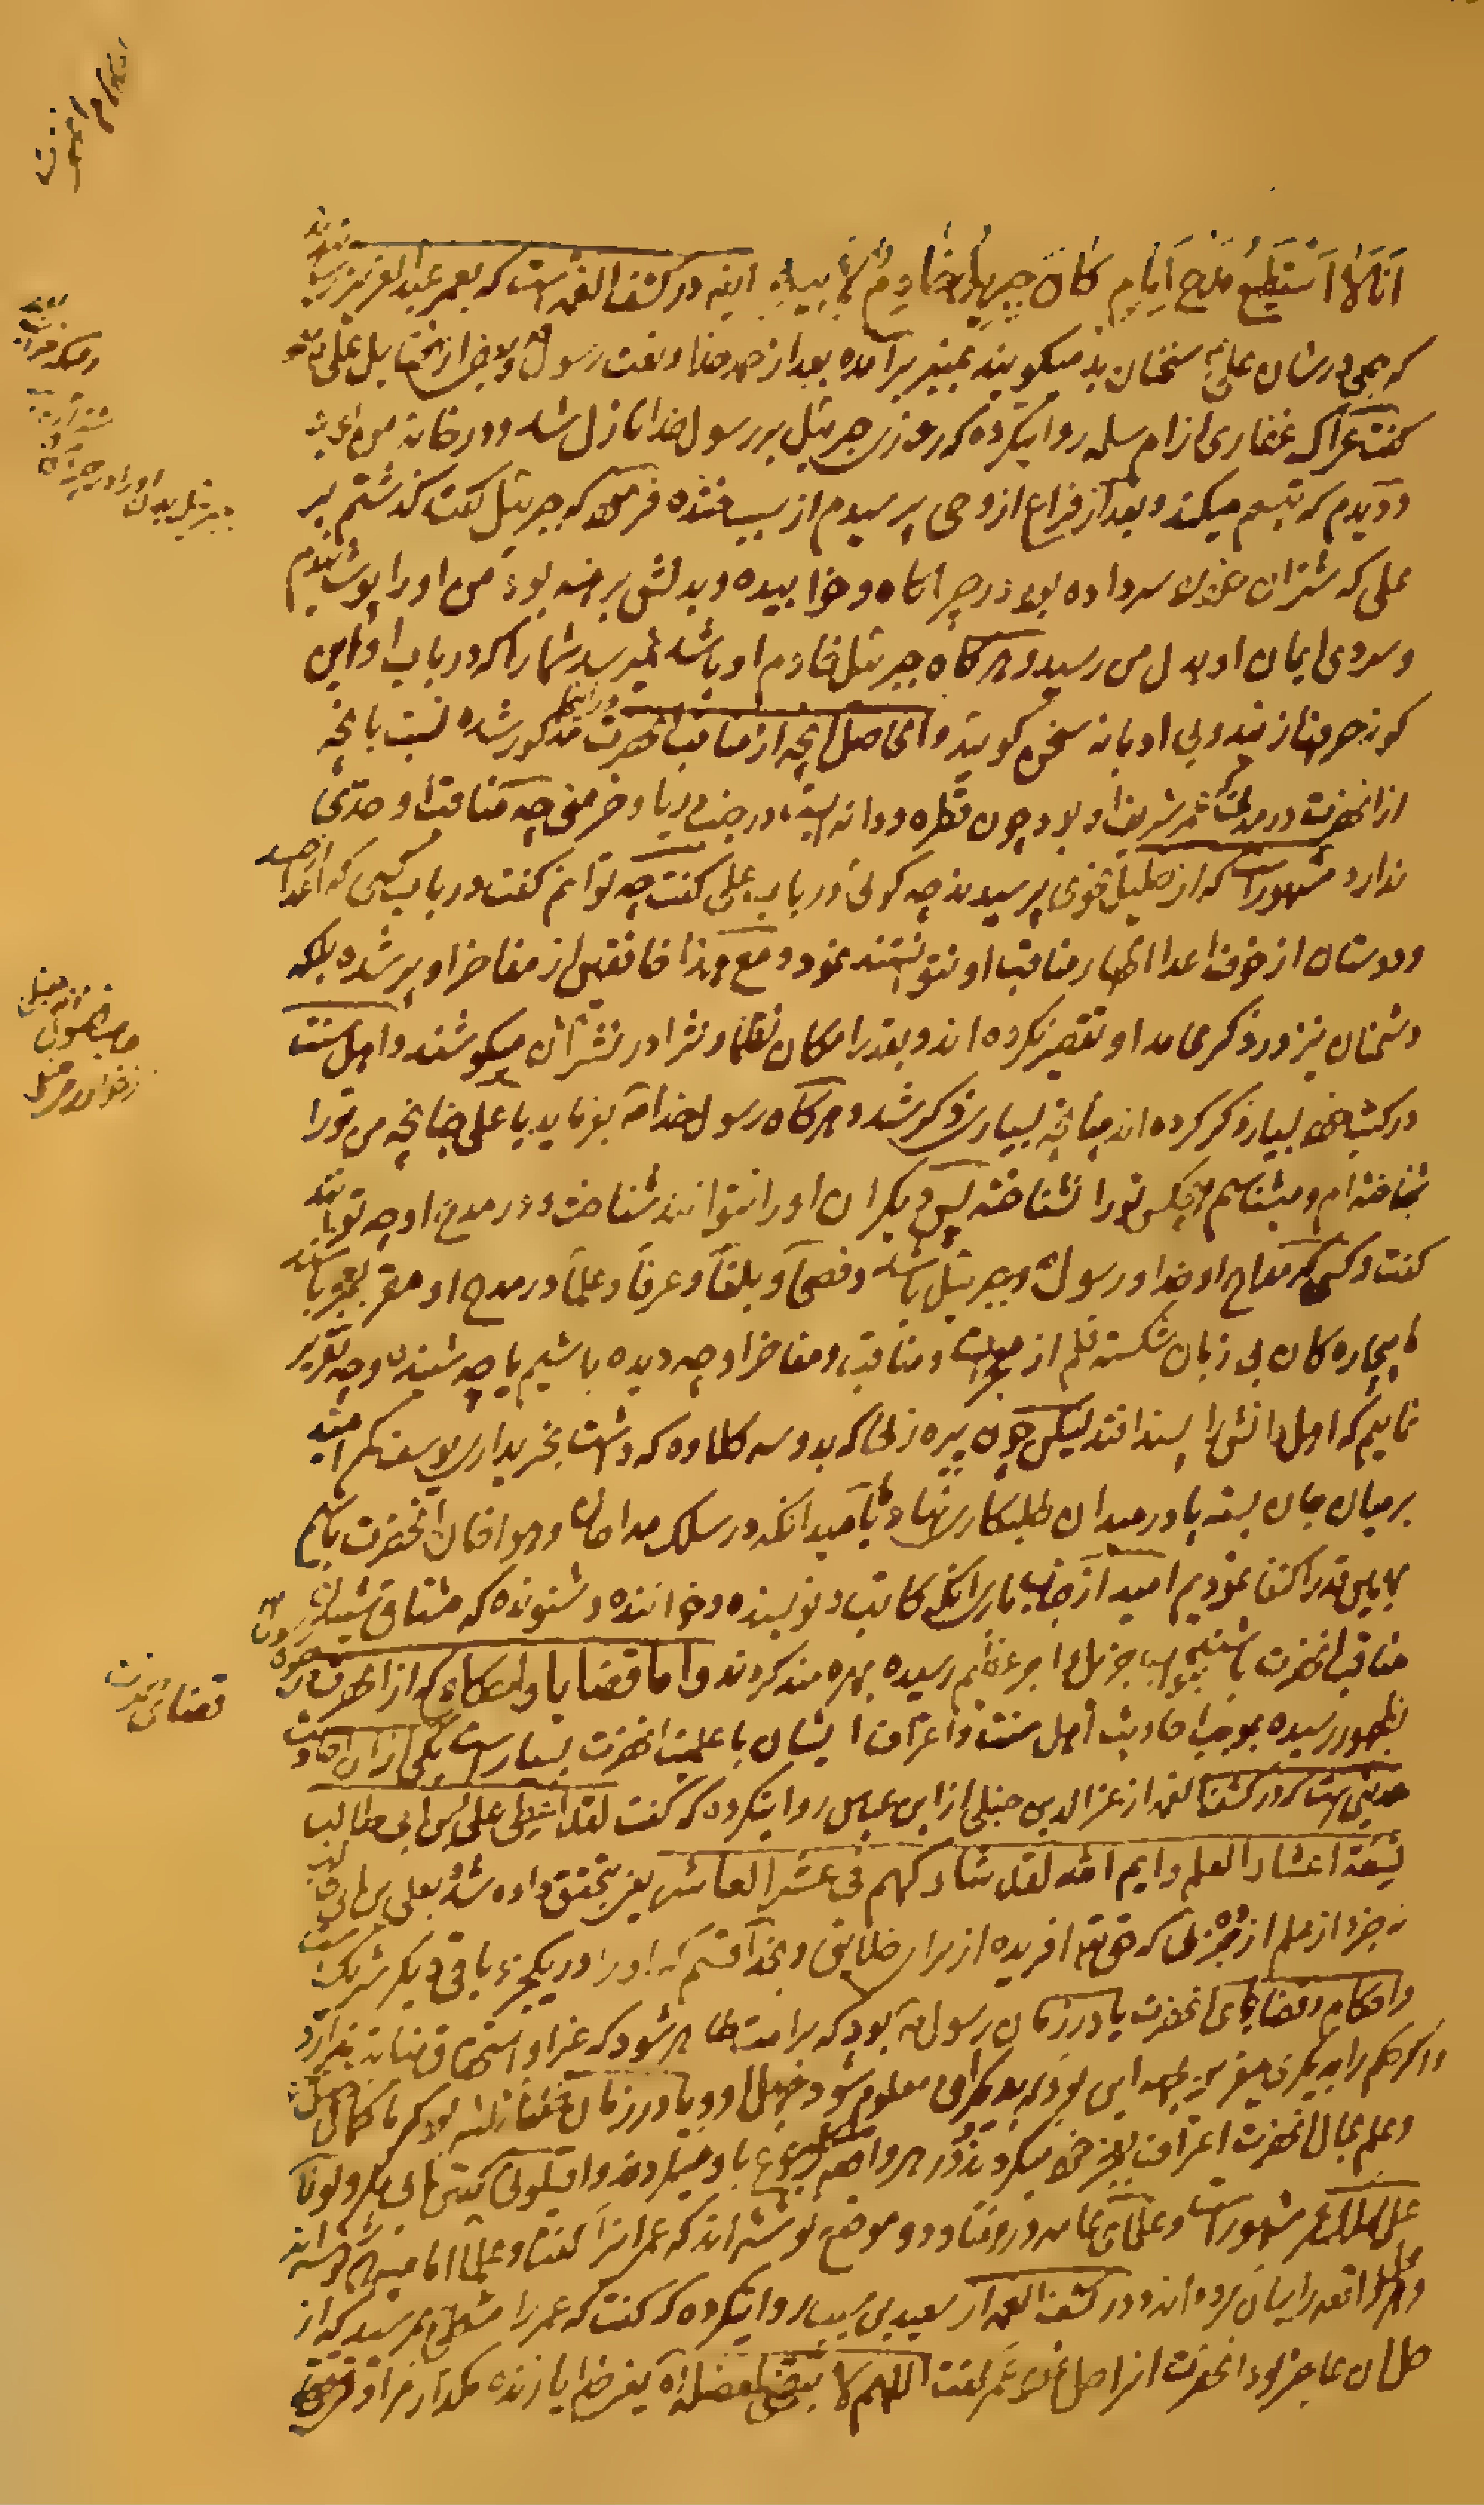 انا لا استطیع مدح امام کان جبریل خادم لابیه ایضا در کشف الغمه است که بعمر عبد العزیز رسانیدند
که جمعی در شان علی سخنان بد میگویند بمنبر برآمده بعد از حمد خدا و نعت رسول و بعضی از فضایل علی
گفت عراک غفاری از ام سلمه روایتکرده که روزی جبرئیل بر رسول خدا نازل شد و در خانه من بود
و دیدم که تبسم میکند و بعد از فراغ از وحی پرسیدم از سبب خنده فرمود که جبرئیل گفت گذشتم بر
علی که شتران خود را سر داده بود در چراگاه و خوابیده و بدنش برهنه بود من او را پوشانیدم
و سردی ایمان او بدل من رسید و هرگاه جبرئیل خادم او باشد نمیرسد شما را که در باب او این
گونه حرفها زنند و بی ادبانه سخن گویند و الحاصل آنچه از مناقب آنحضرت در اینجا مذکور شده نسبت بآنچه
از آنحضرت در مدت عمر شریف او بود چون قطره و دانه ایست در جنب دریا و خرمنی چه مناقب او حدی
ندارد مشهور است که از خلیل نحوی پرسیدند چه گوئی در باب علی گفت چه توانم گفت در باب کسی که اعدا از حسد
و دوستان از خوف اعدا اظهار مناقب او نتوانستند نمود و مع هذا خافقین از مفاخر او پر شده بلکه
دشمنان نیز در ذکر محامد او تقصیر نکرده اند و بقدر امکان نظما و نثرا در نشر آن میکوشند و اهل سنت
در کتب خود بسیار ذکر کرده اند چنانچه بسیاری ذکر شد و هرگاه رسول خدا بفرماید یا علی چنانچه من تو را
شناخته ام و میشناسم هیچکس تو را نشناخته پس دیگران او را نتوانند شناخت و در مدح او چه توانند
گفت و کسی که مداح او خدا و رسول و جبرئیل باشد و فصحا و بلغا و عرفا و علما در مدح او مقر بعجز باشند
ما بیچاره کان بی زبان شکسته قلم از مناقب و مفاخر او چه دیده باشیم یا چه شنیده و چه تقریر
نمائیم که اهل دانش را پسند افتد لیکن چون پیره زنی که بدو سه کلاوه که داشت بخریداری یوسف کمر امید
بر میان جان بسته پا در میدان طلبکاری نهاد بامید آنکه در سلک مداحان و هواخاهان آنحضرت باشیم
بهمین قدر اکتفا نمودیم امید از جناب باری آنکه کاتب و نویسنده و خواننده و شنونده که مشتاق شنیدن
مناقب آنحضرت باشند بثواب جزیل و اجر عظیم رسیده بهره مند کردند و اما قضایا و احکام که از آنحضرت
بظهور رسیده بموجب احادیث اهل سنت و اعتراف ایشان با علمیت آنحضرت بسیار است یکی از آن احادیث
حدیثی است که در کشف الغمه از عز الدین حنبلی از ابن عباس روایتکرده که گفت لقد اعطی علی بن ابی طالب
تسعة اعشار العلم و ایم الله لقد شارکهم فی عشر العاشر یعنی بتحقیق داده شد بعلی بن ابی طالب
نه جزو از علم از ده جزوی که حق تعالی آفریده از برای خلایق و بخدا قسم که او را در یکجزء باقی دیگر شریک است
و احکام و قضایای آنحضرت یا در زمان رسول بود که بر امت ظاهر شود که غیر او استحقاق قضا ندارد
و اگر حکم را بدیگری میفرمود بجهه این بود که بدیگران معلوم شود جهل او و یا در زمان خلفا ثلثه بود که با کمال
و علم بحال آنحضرت اعتراف بعجز خود میکردند و در هر واقعه رجوع باو میکردند و اقیلونی گفتن ابی بکر و لولا
علی لهلک عمر مشهور است و علمای عامه در هفتاد و دو موضع نوشته اند که عمر انرا گفت و علما امامیه
هر واقعه را بیان کرده اند و در کشف الغمه از سعید بن مسیب روایتکرده که گفت که عمر را مشکلی رسید که از
حل آن عاجز بود آنحضرت انرا حل نمود عمر گفت اللهم لا تبقنی لمعضلة آه یعنی خدایا زنده مگذار مرا در
قضایای حضرت